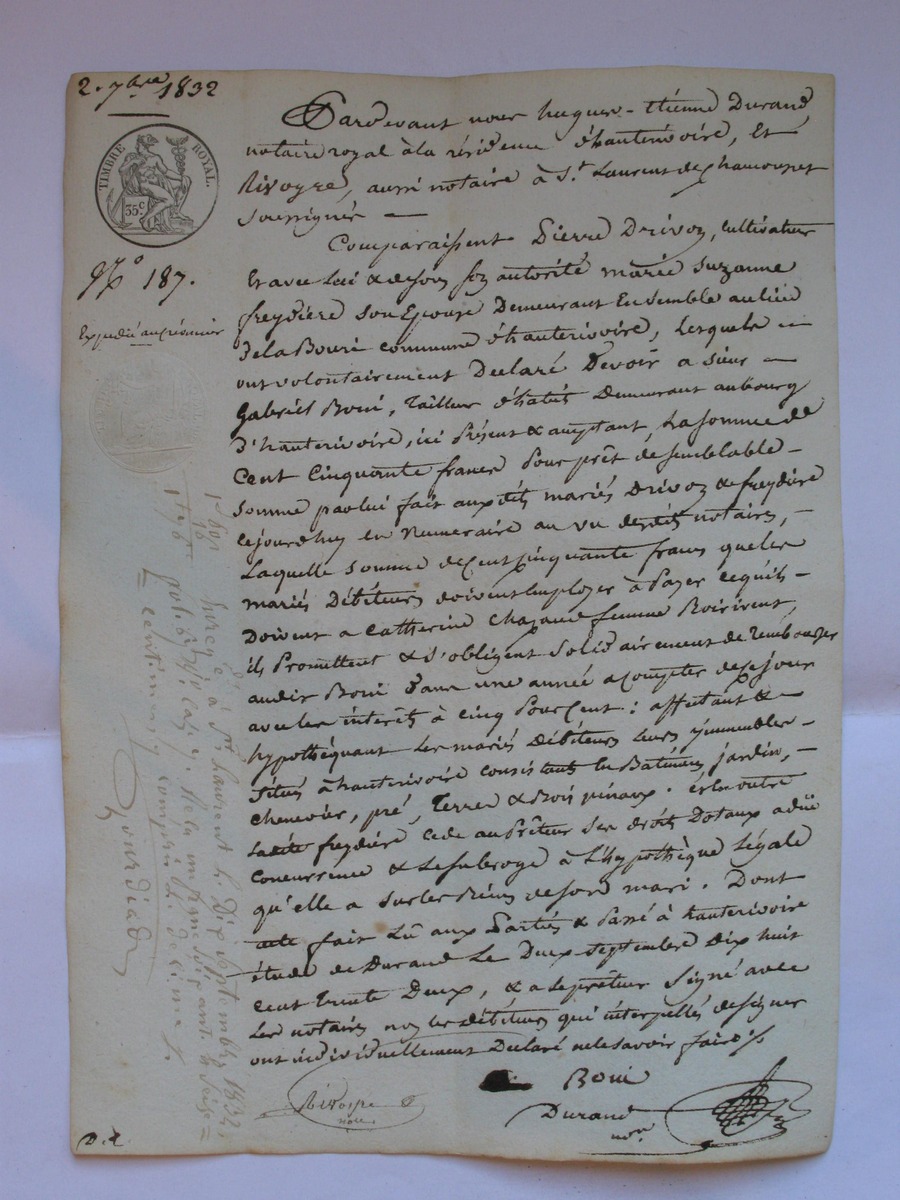 2. 7bre 1832
TIMBRE ROYAL.
35c
No 187.
Expédié au créancier
Pardevant nous hugues-étienne Durand,
notaire royal à la résidence d'hauterivoire, Et
Rivoyre, aussi notaire à St. Laurent de chamousset
soussignés —
Comparaissent Pierre Drivon, cultivateur
Et avec lui & de son autorité marie suzanne
freydière son Epouse Demeurant Ensemble au lieu
de la Bouri commune d'hauterivoire, Lesquels —
ont volontairement Declaré Devoir a sieur —
Gabriel Boni, Tailleur d'habits Demeurant au bourg
d'hauterivoire, ici présent & acceptant, La somme de
Cent Cinquante francs Pour prêt de semblable —
somme par lui fait aux dits mariés Drivon & freydière
cejourdhuy en Numeraire au vu desdits notaires, —
Laquelle somme de Cent Cinquante francs que les
mariés Débiteurs doivent Employer à Payer ce qu'ils —
Doivent a Catherine femme Boirivent,
ils Promettent & s'obligent Solidairement de rembourser
audit Boni Dans une année a compter de ce jour
avec les intérêts à cinq Pour Cent : affectant & —
hypothéquant Les mariés Débiteurs Leurs immeubles —
situés à hauterivoire consistants En Batiments, jardin, —
chenevier, pré, Terres & Bois pinaux. et En outre
Ladite freydière cede au Prêteur ses droits Dotaux a düe
Concurrence & Le subroge à L'hypothèque Légale
qu'elle a sur les Biens de son mari. Dont
acte fait Lû aux Parties & Passé à hauterivoire
étude de Durand Le Deux septembre Dix huit
Cent Trente Deux, & a Le prêteur Signé avec
Les notaires non les débiteurs qui interpellés de signer
ont individuellement Declaré ne le savoir faire
Boni
Rivoyre
nore.
Durand
nore
D. R.
à St Laurent le Dix septembre 1832,
centimes compris le decime